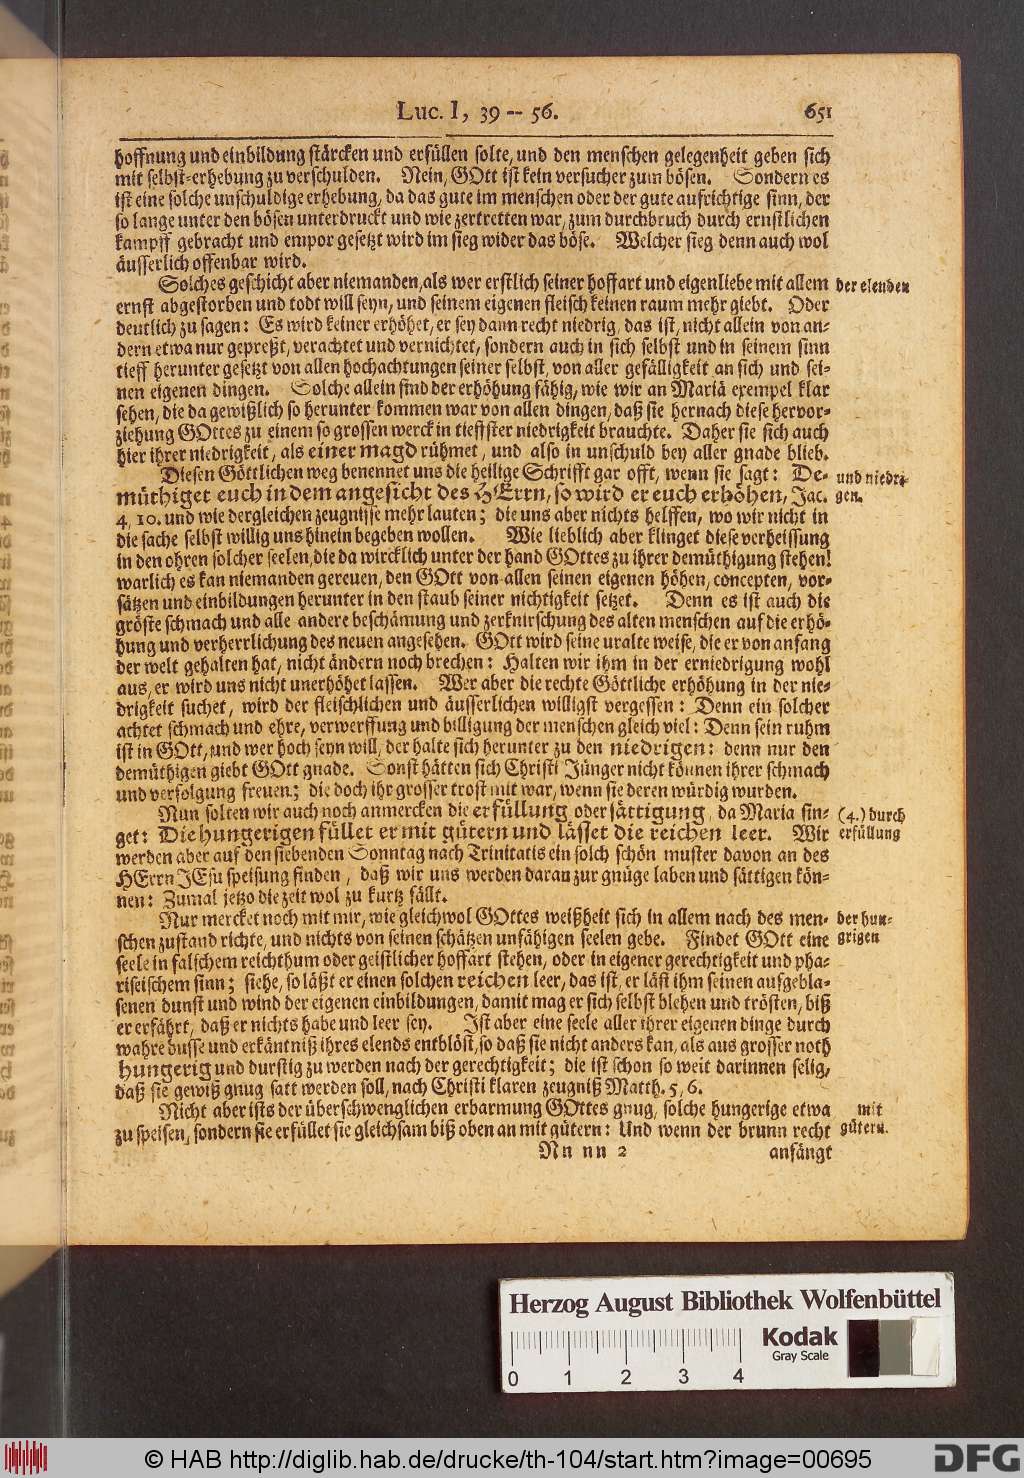 Luc. I, 39 -- 56. 651
hoffnung und einbildung stärcken und erfüllen solte, und den menschen gelegenheit geben sich
mit selbst-erhebung zu verschulden. Nein, GOtt ist kein versucher zum bösen. Sondern es
ist eine solche unschuldige erhebung, da das gute im menschen oder der gute aufrichtige sinn, der
so lange unter den bösen unterdruckt und wie zertretten war, zum durchbruch durch ernstlichen
kampff gebracht und empor gesetzt wird im sieg wider das böse. Welcher sieg denn auch wol
äusserlich offenbar wird.
Solches geschicht aber niemanden, als wer erstlich seiner hoffart und eigenliebe mit allem
der elenden
ernst abgestorben und todt will seyn, und seinem eigenen fleisch keinen raum mehr giebt. Oder
deutlich zu sagen: Es wird keiner erhöhet, er sey dann recht niedrig, das ist, nicht allein von an-
dern etwa nur gepreßt, verachtet und vernichtet, sondern auch in sich selbst und in seinem sinn
tieff herunter gesetzt von allen hochachtungen seiner selbst, von aller gefälligkeit an sich und sei-
nen eigenen dingen. Solche allein sind der erhöhung fähig, wie wir an Mariä exempel klar
sehen, die da gewißlich so herunter kommen war von allen dingen, daß sie hernach diese hervor-
ziehung GOttes zu einem so grossen werck in tieffster niedrigkeit brauchte. Daher sie sich auch
hier ihrer niedrigkeit, als einer magd rühmet, und also in unschuld bey aller gnade blieb.
Diesen Göttlichen weg benennet uns die heilige Schrifft gar offt, wenn sie sagt: De-
und niedri-
müthiget euch in dem angesicht des HErrn, so wird er euch erhöhen, Jac.
gen.
4, 10. und wie dergleichen zeugnisse mehr lauten; die uns aber nichts helffen, wo wir nicht in
die sache selbst willig uns hinein begeben wollen. Wie lieblich aber klinget diese verheissung
in den ohren solcher seelen, die da wircklich unter der hand GOttes zu ihrer demüthigung stehen!
warlich es kan niemanden gereuen, den GOtt von allen seinen eigenen höhen, concepten, vor-
sätzen und einbildungen herunter in den staub seiner nichtigkeit setzet. Denn es ist auch die
gröste schmach und alle andere beschämung und zerknirschung des alten menschen auf die erhö-
hung und verherrlichung des neuen angesehen. GOtt wird seine uralte weise, die er von anfang
der welt gehalten hat, nicht ändern noch brechen: Halten wir ihm in der erniedrigung wohl
aus, er wird uns nicht unerhöhet lassen. Wer aber die rechte Göttliche erhöhung in der nie-
drigkeit suchet, wird der fleischlichen und äusserlichen willigst vergessen: Denn ein solcher
achtet schmach und ehre, verwerffung und billigung der menschen gleich viel: Denn sein ruhm
ist in GOtt, und wer hoch seyn will, der halte sich herunter zu den niedrigen: denn nur den
demüthigen giebt GOtt gnade. Sonst hätten sich Christi Jünger nicht können ihrer schmach
und verfolgung freuen; die doch ihr grosser trost mit war, wenn sie deren würdig wurden.
Nun solten wir auch noch anmercken die erfüllung oder sättigung, da Maria sin-
(4.) durch
get: Die hungerigen füllet er mit gütern und lässet die reichen leer. Wir
erfüllung
werden aber auf den siebenden Sonntag nach Trinitatis ein solch schön muster davon an des
HErrn JEsu speisung finden, daß wir uns werden daran zur gnüge laben und sättigen kön-
nen: Zumal jetzo die zeit wol zu kurtz fällt.
Nur mercket noch mit mir, wie gleichwol GOttes weißheit sich in allem nach des men-
der hun-
schen zustand richte, und nichts von seinen schätzen unfähigen seelen gebe. Findet GOtt eine
grigen
seele in falschem reichthum oder geistlicher hoffart stehen, oder in eigener gerechtigkeit und pha-
riseischem sinn; siehe, so läßt er einen solchen reichen leer, das ist, er läst ihm seinen aufgebla-
senen dunst und wind der eigenen einbildungen, damit mag er sich selbst blehen und trösten, biß
er erfährt, daß er nichts habe und leer sey. Ist aber eine seele aller ihrer eigenen dinge durch
wahre busse und erkäntniß ihres elends entblöst, so daß sie nicht anders kan, als aus grosser noth
hungerig und durstig zu werden nach der gerechtigkeit; die ist schon so weit darinnen selig,
daß sie gewiß gnug satt werden soll, nach Christi klaren zeugniß Matth. 5, 6.
Nicht aber ists der überschwenglichen erbarmung GOttes gnug, solche hungerige etwa
mit
zu speisen, sondern sie erfüllet sie gleichsam biß oben an mit gütern: Und wenn der brunn recht
gütern.
Nn nn 2 anfängt
Herzog August Bibliothek Wolfenbüttel
Kodak
Gray Scale
0 1 2 3 4
© HAB http://diglib.hab.de/drucke/th-104/start.htm?image=00695
DFG